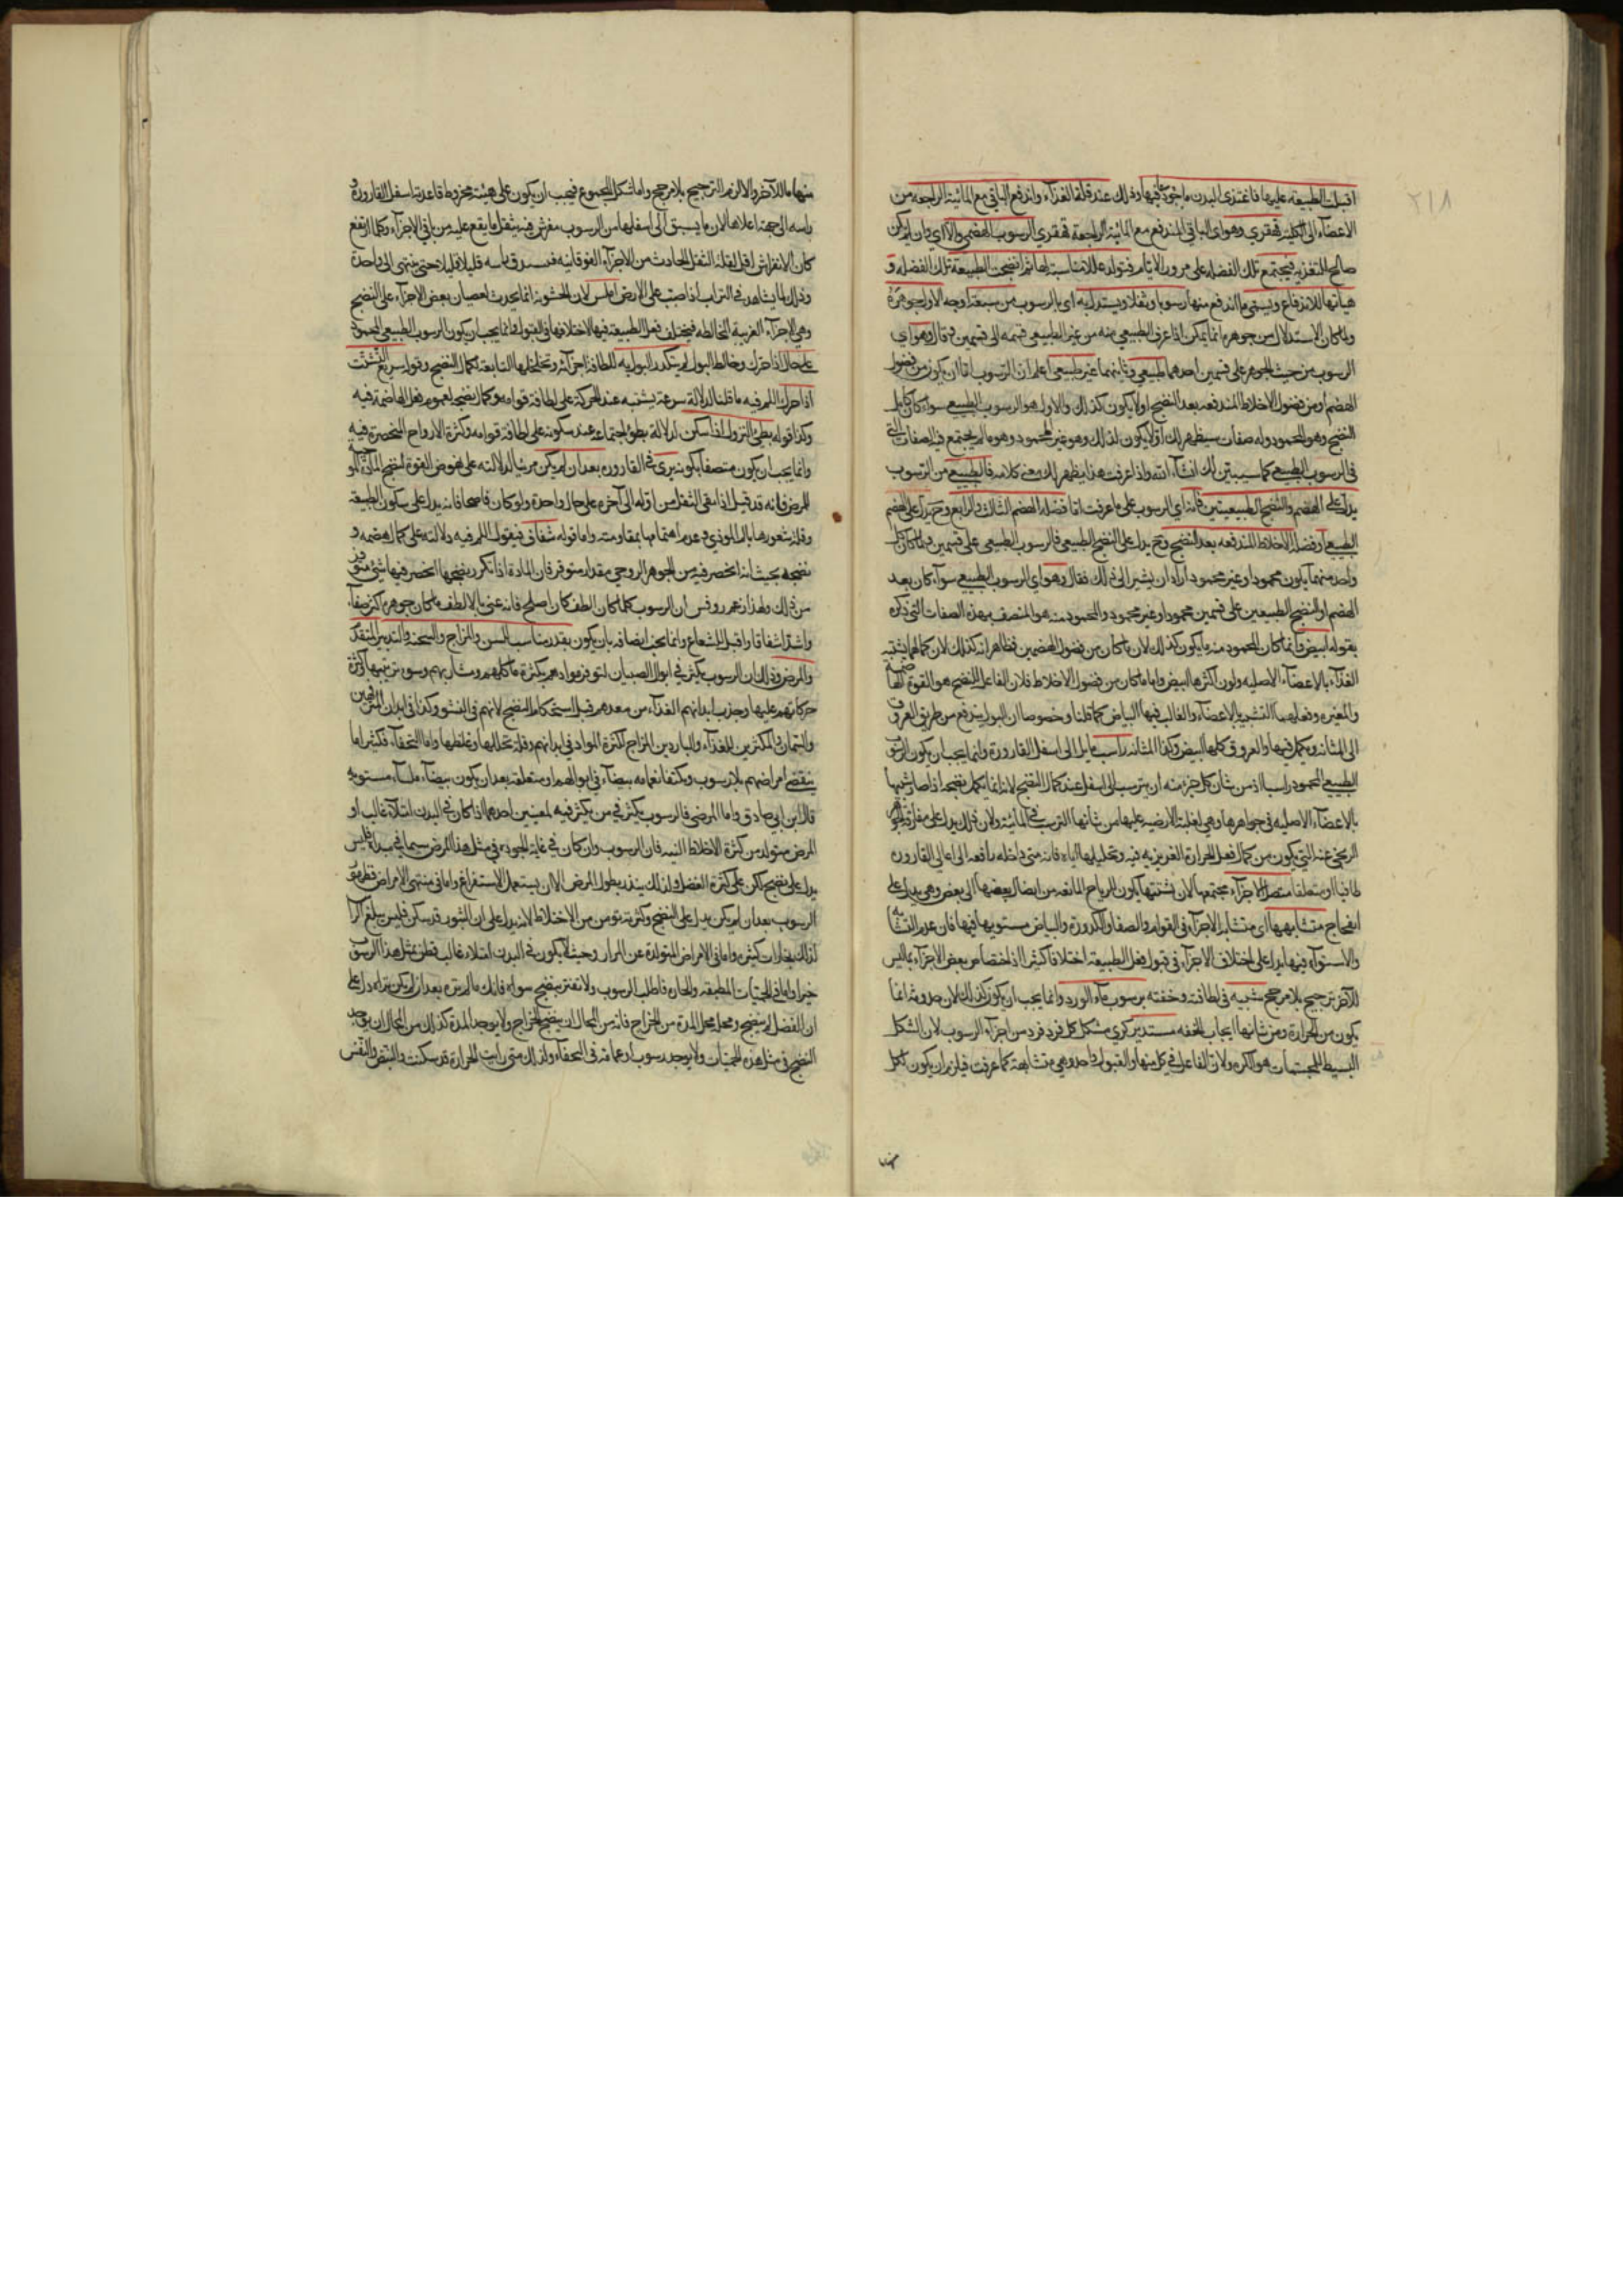 ٢١٨
اقبلت الطبيعة عليها فاغتذى البدن ما يجود فيها وذلك عند قلة الغذاء واندفع الباقي مع المائية الراجعة من
الاعضاء الى الكلية فقري وهو اي الباقي المندفع مع المائية الراجعة قهقري الرسوب الهضمي والا اي وان لم يكن
صالح للتغذية فيجتمع تلك الفضلة على مرور الايام فتولد علة لامتناسبة لها ثم انضجت الطبيعة تلك الفضلة و
هيأتها للاندفاع ويسمى ما اندفع منها رسوبا وثفلا ويستدل به اي بالرسوب من سبعة اوجه الاول جوهره
ولما كان الاستدلال من جوهره انما يمكن اذا عرف الطبيعي منه من غير الطبيعي قسمه الى قسمين فقال وهو اي
الرسوب من حيث الجوهر على قسمين احدهما طبيعي وثانيهما غير طبيعي اعلم ان الرسوب اما ان يكون من فضول
الهضم او من فضول الاخلاط المندفعة بعد النضج او لا يكون كذلك والاول هو الرسوب الطبيعي سواء كان كامل
النضج وهو المحمود وله صفات سيظهر لك او لا يكون كذلك وهو غير المحمود وهو ما لم يجتمع فيه الصفات التي
في الرسوب الطبيعي كما سيبين لك انشاء الله واذا عرفت هذا يظهر لك معنى كلامه فالطبيعي من الرسوب
يدل على الهضم والنضج الطبيعيين فانه اي الرسوب على ما عرفت اما فضلة الهضم الثالث والرابع وح يدل على الهضم
الطبيعي او فضلة الاخلاط المندفعة بعد النضج وح يدل على النضج الطبيعي فالرسوب الطبيعي على قسمين ولما كان كل
واحد منهما يكون محمودا وغير محمود اراد ان يشير الى ذلك فقال وهو اي الرسوب الطبيعي سواء كان بعد
الهضم او النضج الطبيعيين على قسمين محمود او غير محمود والمحمود منه هو المتصف بهذه الصفات التي ذكره
بقوله ابيض وانما كان المحمود منه ما يكون كذلك لان ما كان من فضول الهضمين فظاهر انه كذلك لان كمالهما يشبه
الغذاء بالاعضاء الاصلية ولون اكثرها ابيض واما ما كان من فضول الاخلاط فلان الفاعل للنضج هو القوة الهاضمة
والمغيرة وفعلهما التشبيه بالاعضاء والغالب فيها البياض كما قلنا وخصوصا ان البول يندفع من طريق العروق
الى المثانة ويكمل فيها والعروق كلها ابيض وكذا المثانة راسب مايل الى اسفل القارورة وانما يجب ان يكون الرسوب
الطبيعي المحمود راسبا اذ من شان كل جزء منه ان يترسب الى اسفل عند كمال النضج لانه انما يكمل نضجه اذا صار شبيها
بالاعضاء الاصلية في جواهرها وهي لغلبة الارضية عليها من شأنها الترسب في المائية ولان ذلك يدل على مفارقة الجوهر
الريحي عنه التي يكون من كمال فعل الحرارة الغريزية فيه وتحليلها اياه فانه متى داخله رافعه الى اعالي القارورة
طافيا او متعلقا متصل الاجزاء مجتمعها لان تشتتها يكون لرياح المانعة من ايصال بعضها الى بعض وهي يدل على
انفجاج متشابهها اي متشابه الاجزاء في القوام والصفا والكدورة والبياض مستويها فيها فان عدم التشابه
والاستواء فيها يدل على اختلاف الاجزاء في قبول فعل الطبيعة اختلافا كثيرا اذ اختصاص بعض الاجزاء بما ليس
للآخر ترجيح بلا مرجح شبيه في لطافته وخفته برسوب ماء الورد وانما يجب ان يكون كذلك لان حدوثه انما
يكون من الحرارة ومن شانها ايجاب الخفة مستدير كري مشكل كل فرد فرد من اجزاء الرسوب لان الشكل
البسيط للمجتمعات هو الكرة ولان الفاعل في كل منها والقبول واحد وهي متشابهة كما عرفت فيلزم ان يكون لكل
منها
منها ما للآخر والا لزم الترجيح بلا مرجح واما شكل المجموع فيجب ان يكون على هيئة مخروط قاعدته اسفل القارورة و
راسه الى جهة اعلاها لان ما يسبق الى اسفلها من الرسوب مفترش فيه بثقل ما يقع عليه من باقي الاجزاء وكلما ارتفع
كان الانفراش اقل لقلة الثقل الحادث من الاجزاء الفوقانية فيستدق راسه قليلا قليلا حتى ينتهي الى واحدة
وذلك كما يشاهد في التراب اذا صب على الارض املس لان الخشونة انما يحدث لعصيان بعض الاجزاء على النضج
وهي الاجزاء الغريبة المخالطة فيختلف فعل الطبيعة فيها لاختلافها في القبول وانما يجب ان يكون الرسوب الطبيعي المحمود
على حال اذا حرك وخالط البول لم يتكدر البول به للطافة اجزائه وتخلخلها التابعة لكمال النضج وقوله سريع التشتت
اذا حرك اللام فيه ما قلنا لدلالة سرعة تشتته عند الحركة على لطافة قوامه وكمال نضجه لعموم فعل الهاضمة فيه
وكذا قوله بطيء النزول اذا سكن لدلالة بطؤ اجتماعه عند سكونه على لطافة قوامه وكثرة الارواح المنحصرة فيه
وانما يجب ان يكون متصفا بكونه يرى في القارورة بعد ان لم يكن مرئيا لدلالته على نهوض القوة لنضج المادة المولدة
للمرض فانه قد قيل اذا بقي الثفل من اوله الى آخره على حال واحدة ولو كان فاضلا فانه يدل على سكون الطبيعة
وقلة شعورها بالمؤذي وعدم اهتمامها بمقاومته واما قوله شفافي فيقول اللام فيه دلالته على كمال هضمه و
نضجه بحيث انه انحصر فيه من الجوهر الروحي مقدار متوفر فان المادة اذا تكرر نضجها انحصر فيها شيء متوفر
من ذلك ولهذا زعم روفس ان الرسوب كلما كان الطف كان اصلح فانه عنى بالالطف ما كان جوهره اكثر صفاء
واشد اشفافا واقبل للشعاع وانما يجب ايضا فيه بان يكون بقدر مناسب السن والمزاج والسحنة والتدبير المتقدم
والمرض وذلك ان الرسوب يكثر في ابوال الصبيان لتوفر موادهم بكثرة ماكلهم ومشاربهم وسوء ترتيبها وكثرة
حركاتهم عليها وجذب ابدانهم الغذاء من معدهم قبل استحكام النضج لانهم في النشو وكذا في ابدان المترفهين
والسمان والمكثرين للغذاء والباردين المزاج لكثرة المواد في ابدانهم وقلة تحللها وغلظها واما النحفاء فكثيرا ما
ينقضي امراضهم بلا رسوب ويكتفى بغمامة بيضاء في ابوالهم او متعلقة بعد ان يكون بيضاء ملساء مستوية
قال ابن ابي صادق واما المرضى فالرسوب يكثر في من يكثر فيه لمعنيين احدهما اذا كان في البدن امتلاء غالب او
المرض متولد من كثرة الاخلاط النية فان الرسوب وان كان في غاية الجودة في مثل هذا المرض سيما في مبدائه فليس
يدل على نضج لكن على كثرة الفضل ولذلك ينذر بطول المرض الا ان يستعمل الاستفراغ واما في منتهى الامراض فظهور
الرسوب بعد ان لم يكن يدل على النضج وكثرته تومن من الاختلاط لانه يدل على ان الثور قد سكن فليس يبلغ الراس
لذلك بخارات كثيرة واما في الامراض المتولدة عن المرار وحيث لا يكون في البدن امتلاء غالب فظن بمثل هذا الرسوب
خيرا واما في الحميات المطبقة والحارة فاطلب الرسوب ولا تغتر بنضج سواه فانك ما لم تره بعد ان لم يكن تراه دل على
ان الفضل لم ينضج ومحله محل المدة من الخراج فانه من المحال ان ينضج الخراج ولا يوجد المدة كذلك من المحال ان يوجد
النضج في مثل هذه الحميات ولا يوجد رسوب او غمامة في النحفاء ولذلك متى رايت الحرارة قد سكنت والنبض والنفس